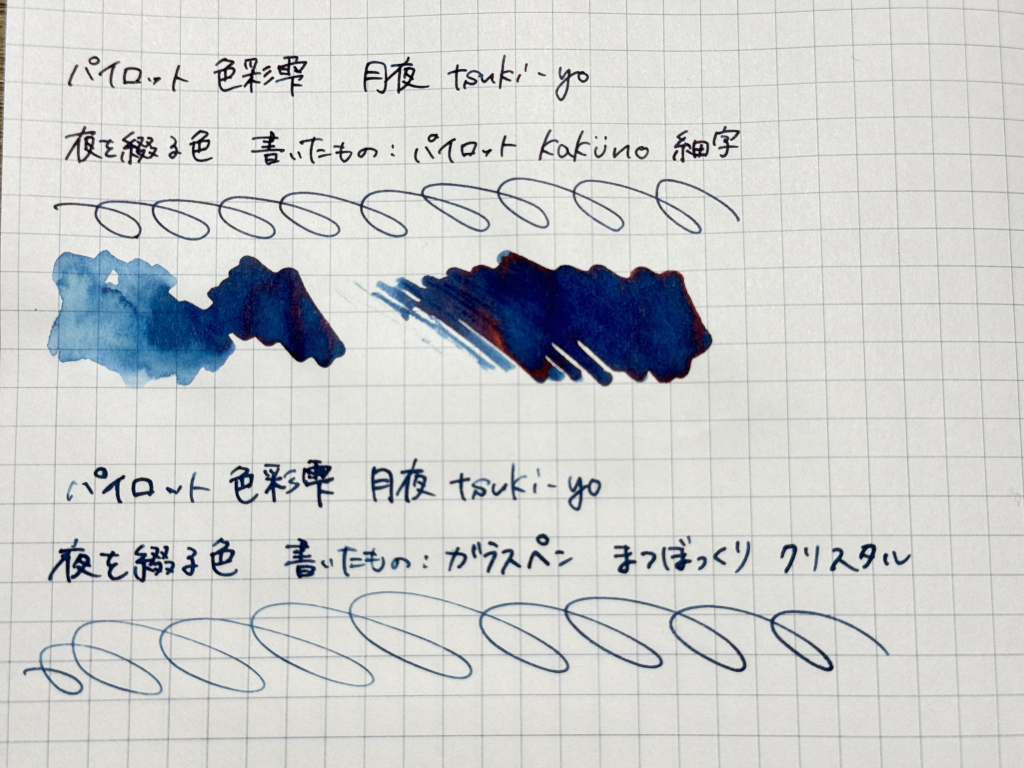 パイロット 色彩雫 月夜 tsuki-yo
夜を綴る色 書いたもの：パイロット kaküno 細字
パイロット 色彩雫 月夜 tsuki-yo
夜を綴る色 書いたもの：ガラスペン まつぼっくり クリスタル